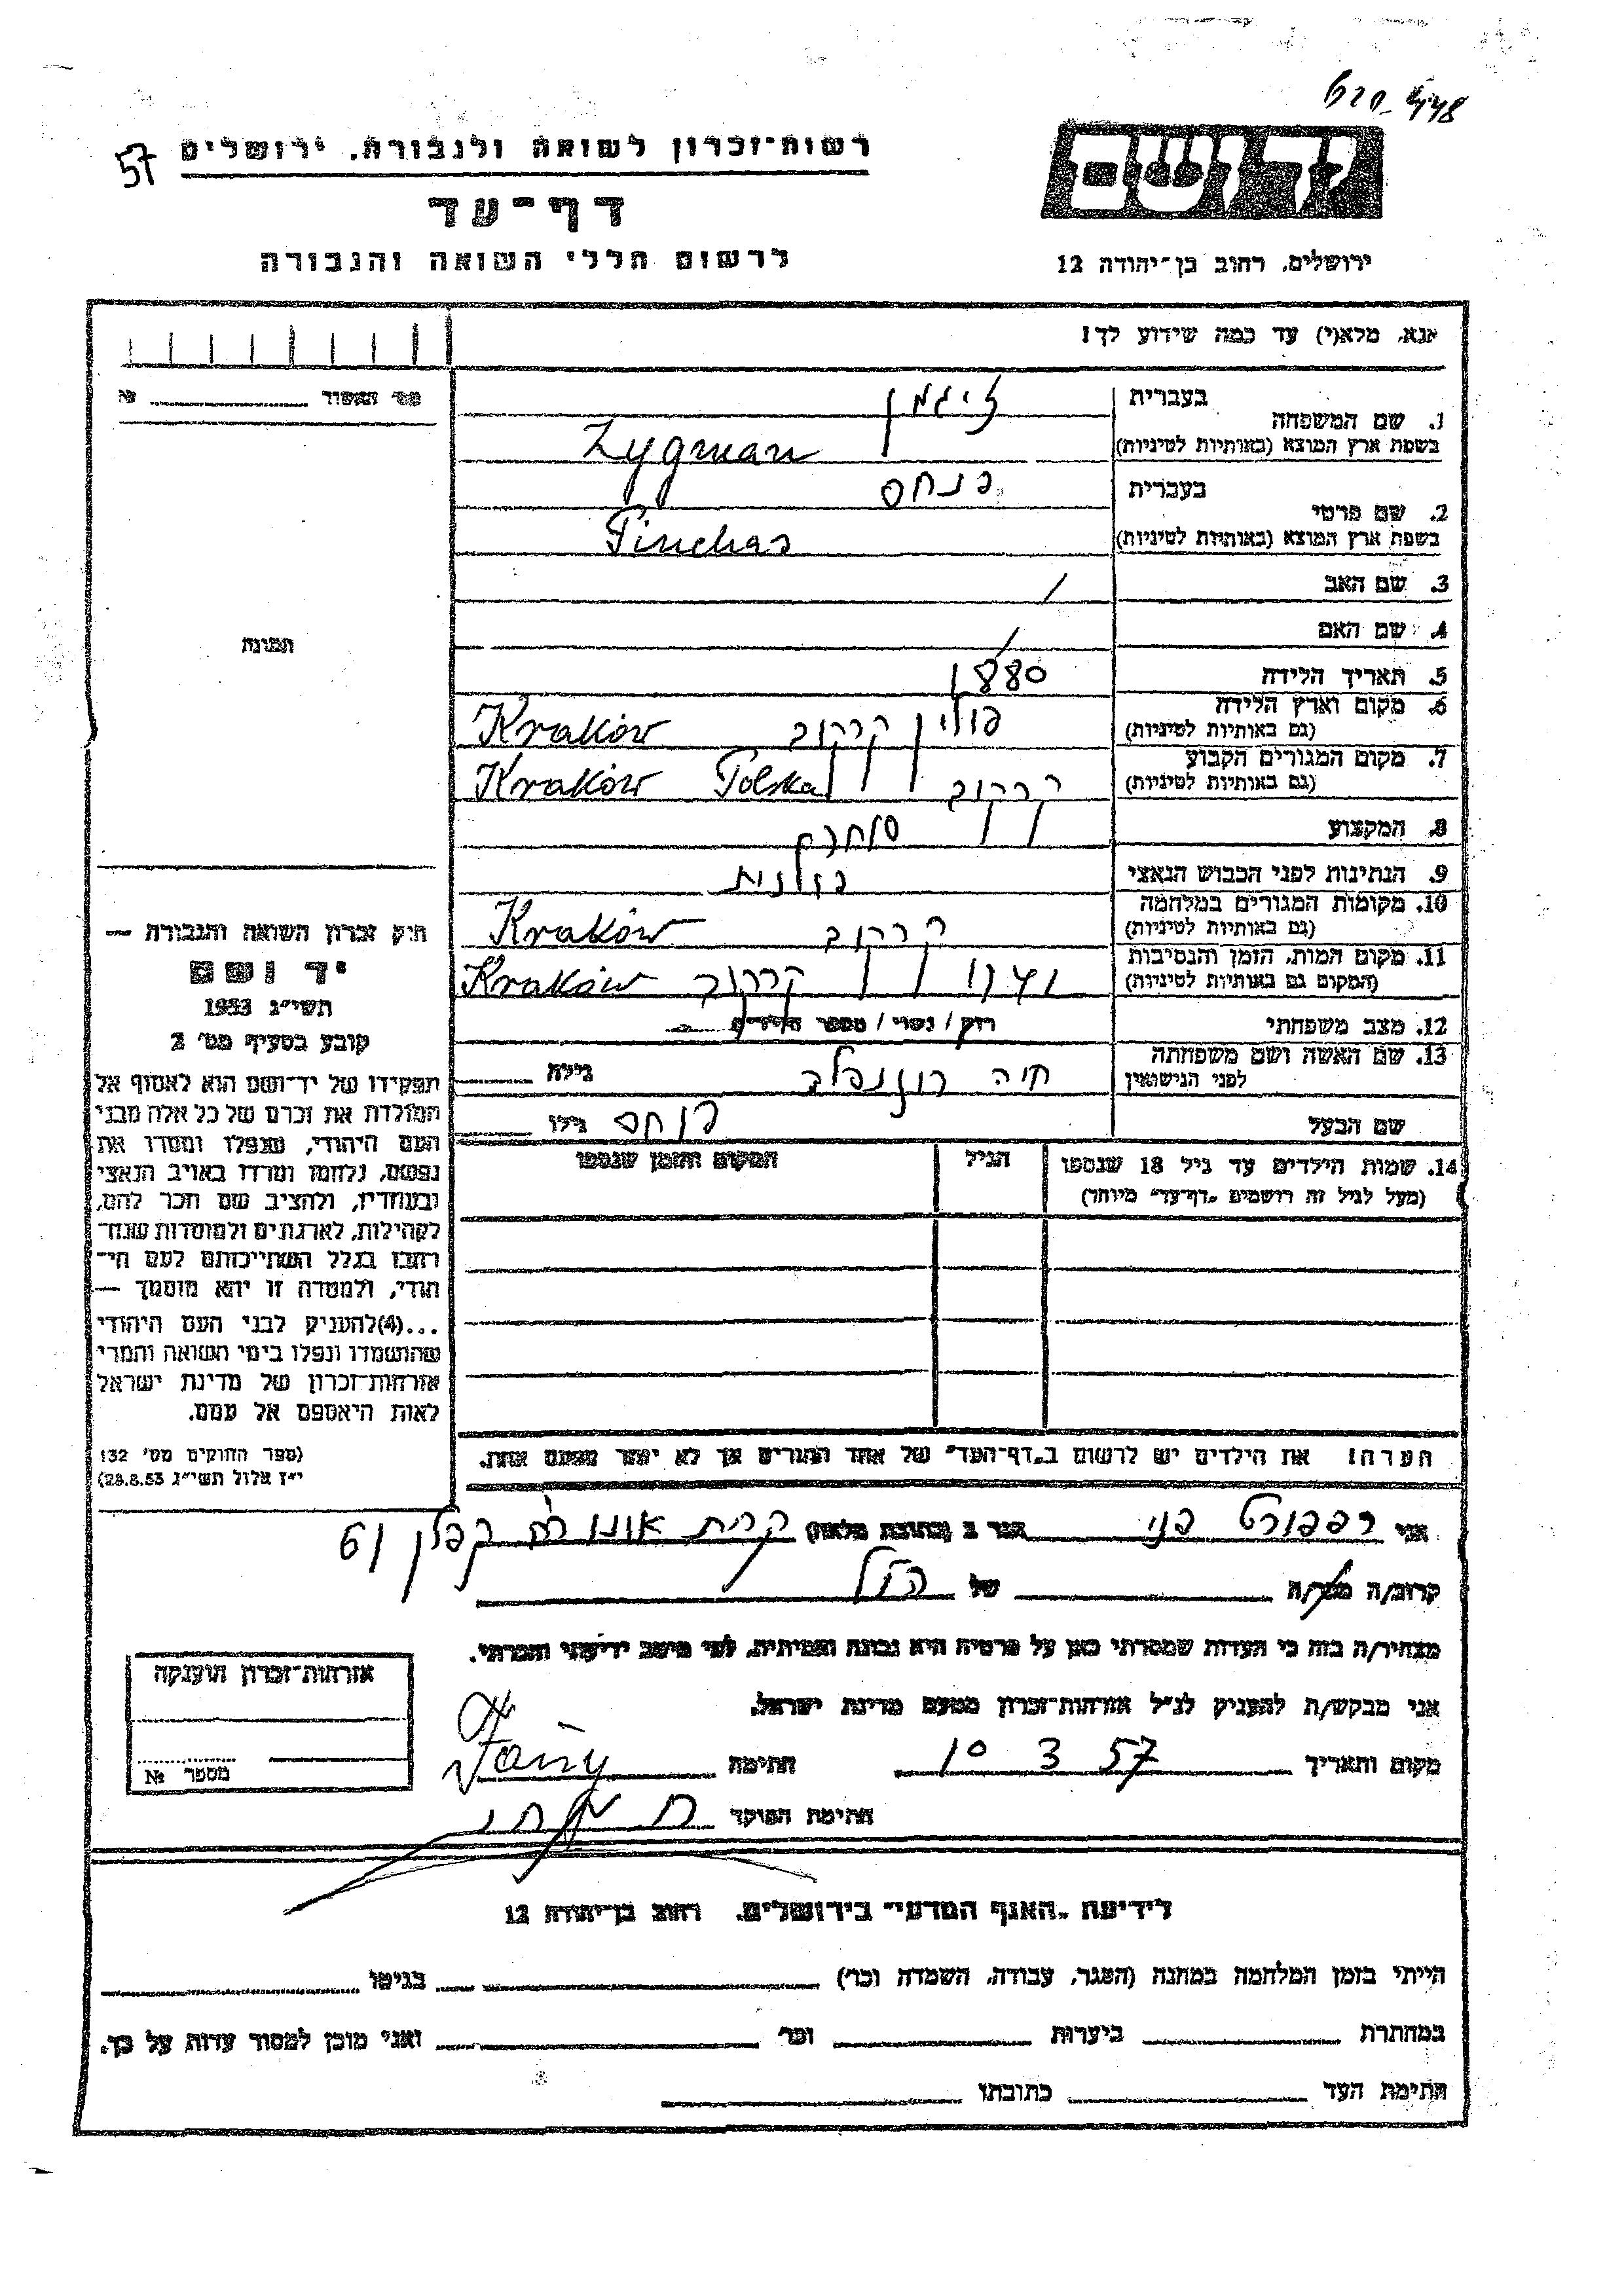 57
רשות־זכרון לשואה ולגבורה, ירושלים
דף־עד
לרשום חללי השואה והגבורה
ירושלים, רחוב בן־יהודה 12
אנא, מלא(י) עד כמה שידוע לך!
מס' האסיר №
בעברית
זיגמן
1. שם המשפחה
בשפת ארץ המוצא (באותיות לטיניות)
Zygman
בעברית
פנחס
2. שם פרטי
בשפת ארץ המוצא (באותיות לטיניות)
Pinchas
3. שם האב /
4. שם האם /
תמונה
5. תאריך הלידה 1880
6. מקום וארץ הלידה
(גם באותיות לטיניות)
פולין קרקוב Kraków
7. מקום המגורים הקבוע
(גם באותיות לטיניות)
קרקוב Polska Kraków
8. המקצוע סוחר
9. הנתינות לפני הכבוש הנאצי פולנית
10. מקומות המגורים במלחמה
(גם באותיות לטיניות)
קרקוב Kraków
11. מקום המות, הזמן והנסיבות
(המקום גם באותיות לטיניות)
קרקוב Kraków
12. מצב משפחתי רוק / נשוי / מספר הילדים
13. שם האשה ושם משפחתה
לפני הנישואין
חיה רוזנפלד גילה
שם הבעל פנחס גילו
14. שמות הילדים עד גיל 18 שנספו הגיל המקום והזמן שנספו
(מעל לגיל זה רושמים „דף־עד" מיוחד)
הערה! את הילדים יש לרשום ב„דף־העד" של אחד ההורים אך לא יותר מפעם אחת.
חוק זכרון השואה והגבורה —
יד ושם
תשי"ג 1953
קובע בסעיף מס' 2
תפקידו של יד־ושם הוא לאסוף אל
המולדת את זכרם של כל אלה מבני
העם היהודי, שנפלו ומסרו את
נפשם, נלחמו ומרדו באויב הנאצי
ובעוזריו, ולהציב שם וזכר להם,
לקהילות, לארגונים ולמוסדות שנח־
רבו בגלל השתייכותם לעם הי־
הודי, ולמטרה זו יהא מוסמך —
...(4)להעניק לבני העם היהודי
שהושמדו ונפלו בימי השואה והמרי
אזרחות־זכרון של מדינת ישראל
לאות היאספם אל עמם.
(ספר החוקים מס' 132
י"ז אלול תשי"ג 28.8.53)
אני רפפורט פני הגר ב (כתובת מלאה) קרית אונו קפלן 61
קרוב/ה מכר/ה של הנ"ל
מצהיר/ה בזה כי העדות שמסרתי כאן על פרטיה היא נכונה ואמיתית, לפי מיטב ידיעתי והכרתי.
אני מבקש/ת להעניק לנ"ל אזרחות־זכרון מטעם מדינת ישראל.
מקום ותאריך 10 3 57 חתימה Fany
חתימת הפוקד
אזרחות־זכרון הוענקה
מספר №
לידיעת „האגף המדעי" בירושלים, רחוב בן־יהודה 12
הייתי בזמן המלחמה במחנה (הסגר, עבודה, השמדה וכו') בגיטו
במחתרת ביערות וכו' ואני מוכן למסור עדות על כך.
חתימת העד כתובתו